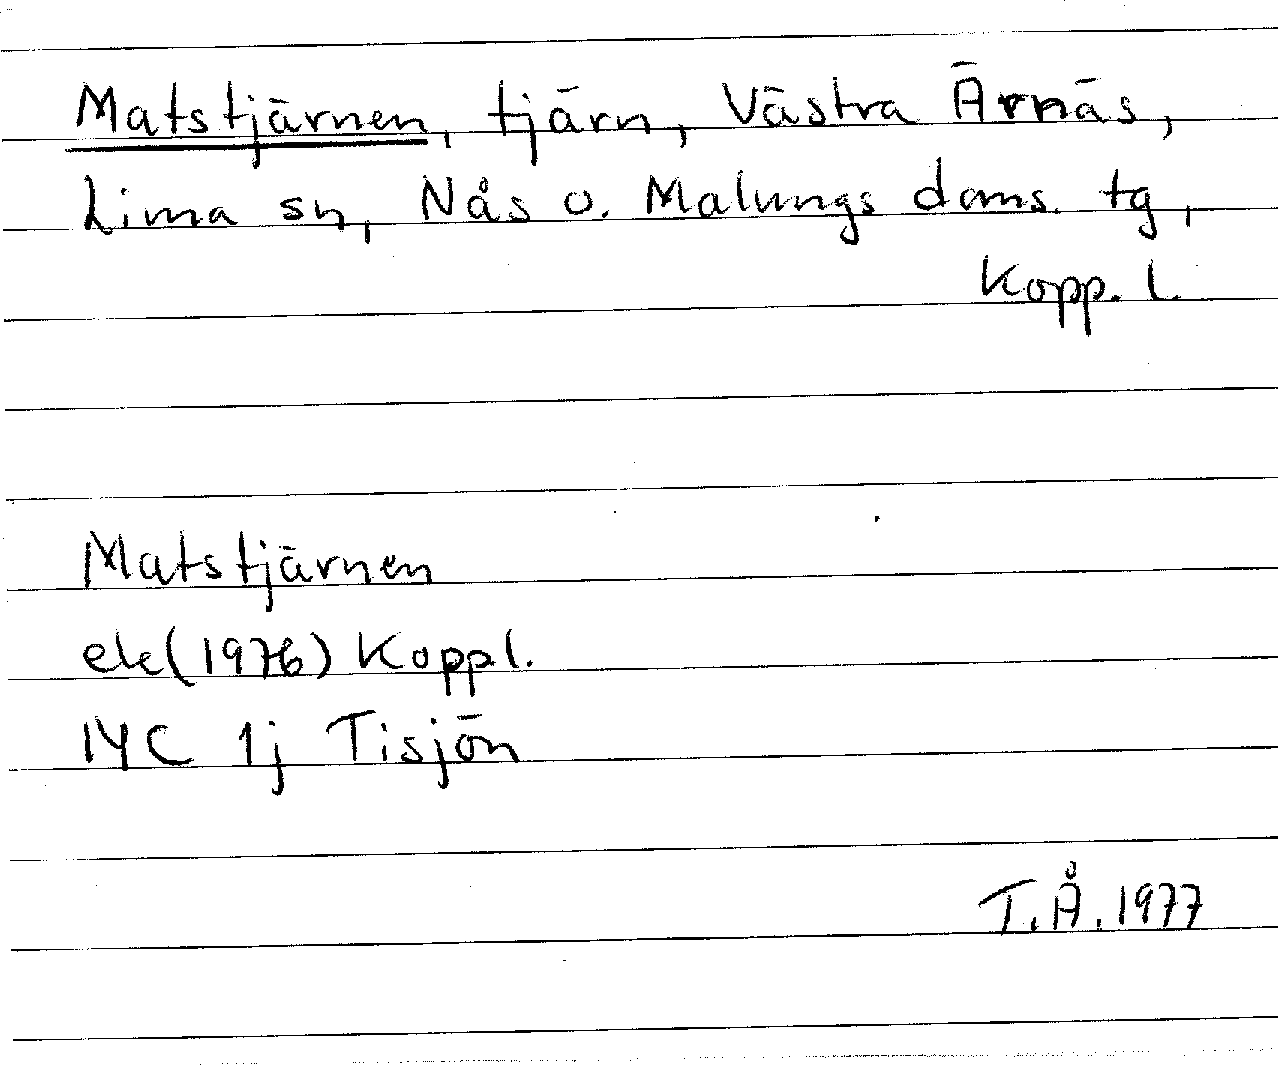 Matstjärnen, tjärn, Västra Ärnäs,
Lima sn, Nås o. Malungs doms. tg,
Kopp. l.
Matstjärnen
ek (1976) Kopp l.
14C 1j Tisjön
T.Å. 1977